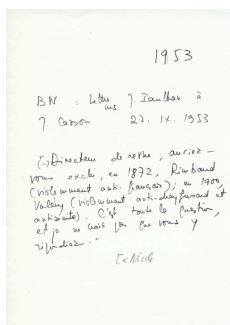 1953
BN : Lettre ms. J. Paulhan à
J. Cassou 27. IX. 1953
(..) Directeur de revue, auriez-
vous exclu, en 1872, Rimbaud
(violemment anti-français); en 1900,
Valéry (violemment anti-dreyfusard et
antisémite). C'est toute la question,
et je ne crois pas que vous y
répondiez."